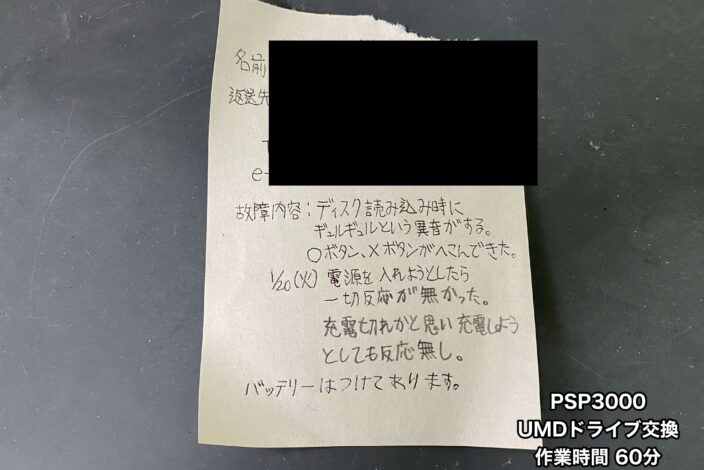 名前
返送先
e-
故障内容:ディスク読み込み時に
ギュルギュルという異音がする。
○ボタン、×ボタンがへこんできた。
1/20(火) 電源を入れようとしたら
一切反応が無かった。
充電切れかと思い充電しよう
としても反応無し。
バッテリーはつけてあります。
PSP3000
UMDドライブ交換
作業時間 60分